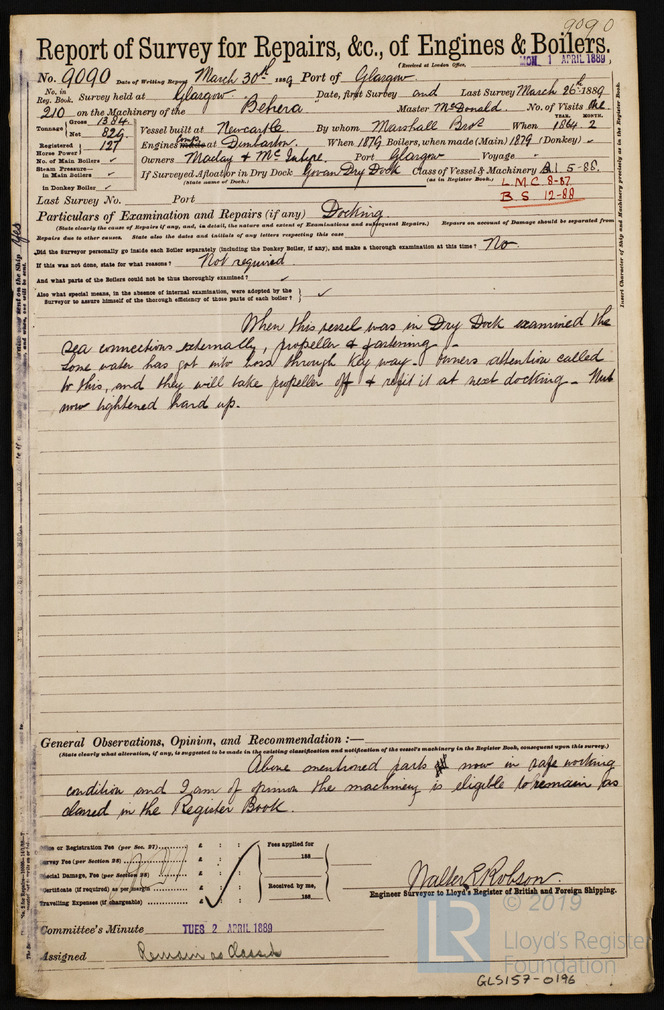 9090
Report of Survey for Repairs, &c., of Engines & Boilers.
(Received at London Office, MON. 1 APRIL 1889
No. 9090 Date of Writing Report March 30th 1889 Port of Glasgow
No. in Reg. Book. Survey held at Glasgow. Date, first Survey and Last Survey March 26th 1889
210 on the Machinery of the "Behera" Master McDonald. No. of Visits one
Tonnage Gross 1384
Net 829
Vessel built at Newcastle. By whom Marshall Bros When YEAR. 1864 MONTH. 2
Registered Horse Power 127
Engines made at Dumbarton. When 1879 Boilers, when made (Main) 1879 (Donkey) -
No. of Main Boilers ✓
Owners Maclay & McIntyre. Port Glasgow Voyage
Steam Pressure— in Main Boilers ✓
in Donkey Boiler ✓
If Surveyed Afloat or in Dry Dock Govan Dry Dock Class of Vessel & Machinery A.1. 5-88.
(State name of Dock.) (as in Register Book.) L.M.C 8-87
B.S. 12-88
Last Survey No. Port
Particulars of Examination and Repairs (if any) Docking
(State clearly the cause of Repairs if any, and, in detail, the nature and extent of Examinations and consequent Repairs.) Repairs on account of Damage should be separated from
Repairs due to other causes. State also the dates and initials of any letters respecting this case
Did the Surveyor personally go inside each Boiler separately (including the Donkey Boiler, if any), and make a thorough examination at this time? No
If this was not done, state for what reasons? Not required
And what parts of the Boilers could not be thus thoroughly examined? ✓
Also what special means, in the absence of internal examination, were adopted by the
Surveyor to assure himself of the thorough efficiency of those parts of each boiler? ✓
When this vessel was in Dry Dock examined the
sea connections externally, propeller & fastening.
Some water has got into boss through key way. Owners attention called
to this, and they will take propeller off & refit it at next docking - Nut
now tightened hard up.
General Observations, Opinion, and Recommendation :—
(State clearly what alteration, if any, is suggested to be made in the existing classification and notification of the vessel's machinery in the Register Book, consequent upon this survey.)
Above mentioned parts now in safe working
condition and I am of opinion the machinery is eligible to remain as
classed in the Register Book.
Office or Registration Fee (per Sec. 27) £ : : Fees applied for
Survey Fee (per Section 28) £ : : 188
Special Damage, Fee (per Section 28) £ : :
Certificate (if required) as per margin £ : : Received by me,
Travelling Expenses (if chargeable) £ : : 188
Walter S. Robson.
Engineer Surveyor to Lloyd's Register of British and Foreign Shipping.
Committee's Minute TUES 2 APRIL 1889
Assigned Remain as Classed
Insert Character of Ship and Machinery precisely as in the Register Book.
Yes
LR
© 2019
Lloyd's Register
Foundation
GLS157-0196